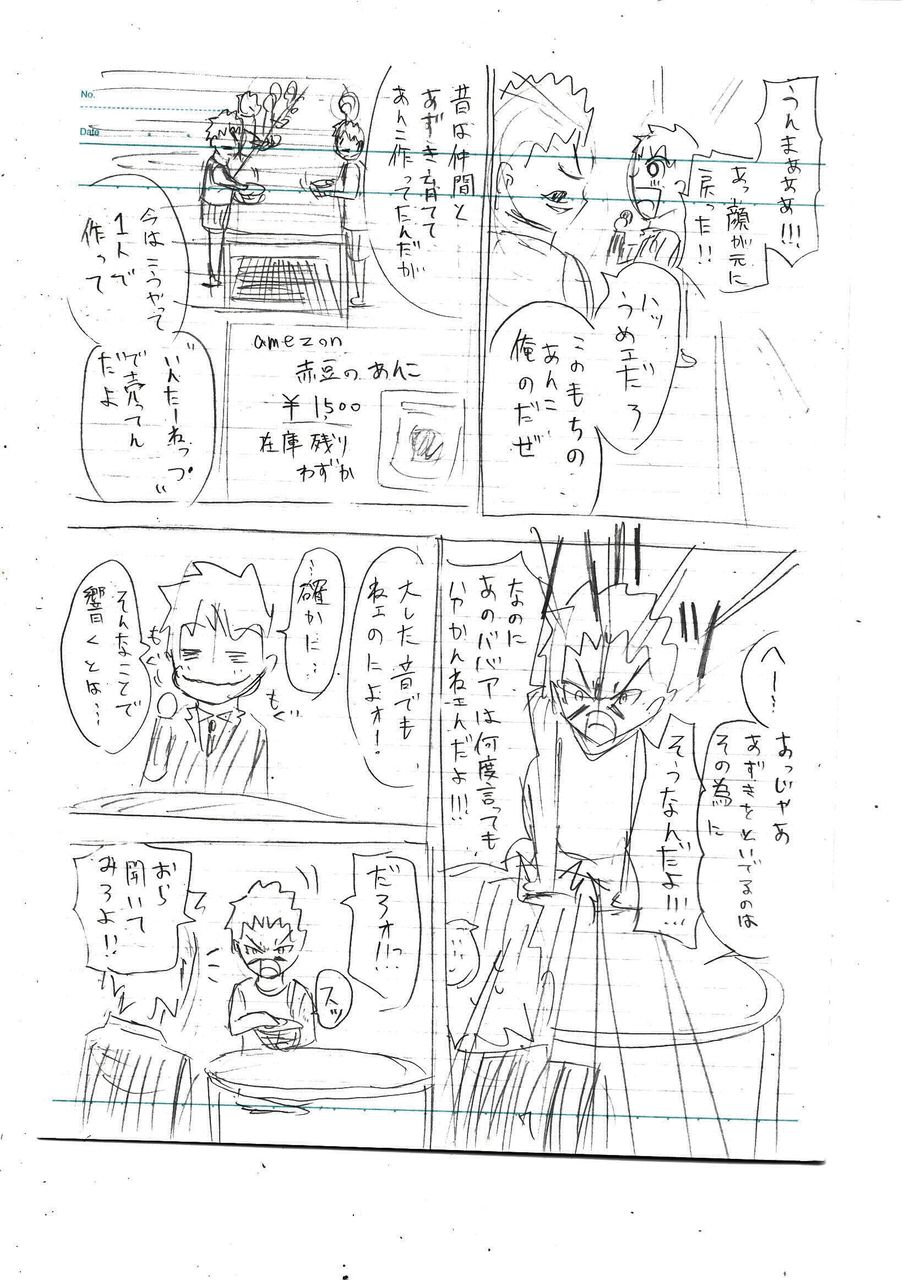 うんまぁぁぁ!!!
あっ顔が元に
戻った!!
ハッ
うめェだろ
このもちの
あんこ
俺のだぜ
No.
Date
昔は仲間と
あずき育てて
あんこ作ってたんだが
今はこうやって
1人で
作って
amezon
赤豆のあんこ
¥1,500
在庫残り
わずか
"いんたーねっつ"
で売ってん
だよ
へー…
あっじゃあ
あずきをといでるのは
その為に
そうなんだよ!!!
なのに
あのババアは何度言っても
わかんねェんだよ!!!
大した音でも
ねェのによォ!
…確かに…
そんなことで
響くとは…
もぐ
もぐ
だろォ!!っ
スッ
おら
聞いて
みろよ!!